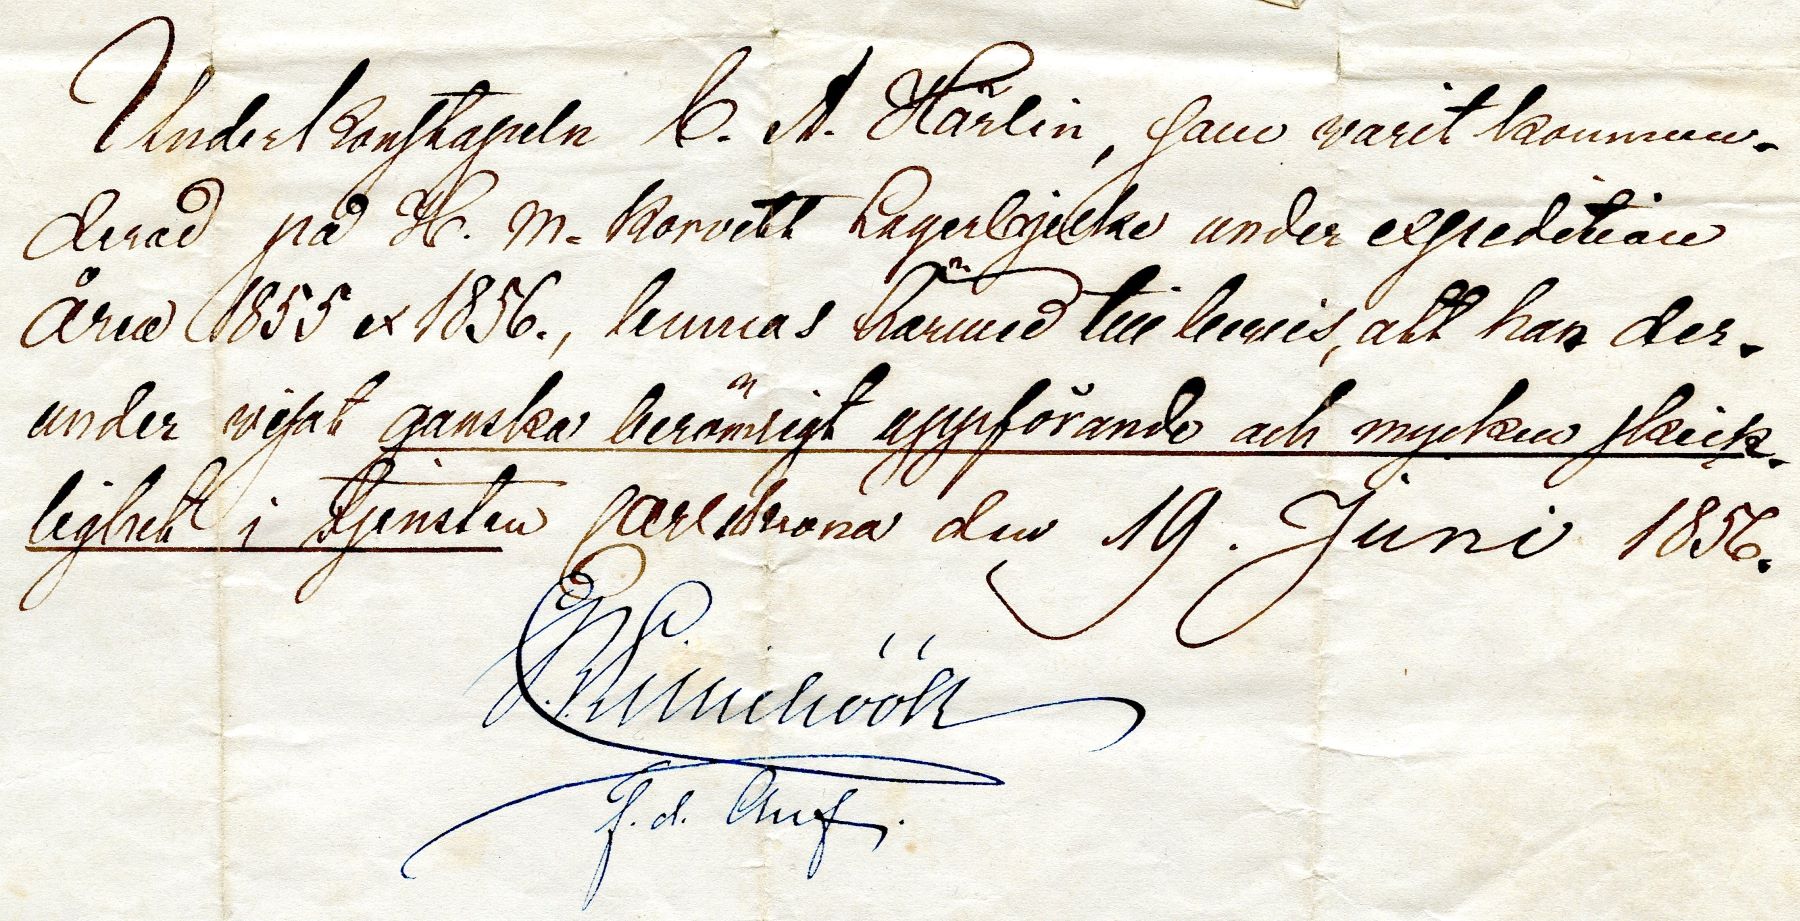 Underkonstapeln C. A. Härlin, som varit kommen-
derad på H. M. Korvett Lagerbjelke under expedition
åren 1855 et 1856., lemnas härmed till bevis, att han der-
under visat ganska berömligt uppförande och mycken skick-
lighet i tjensten Carlskrona den 19. Juni 1856.
f. d. Chef.